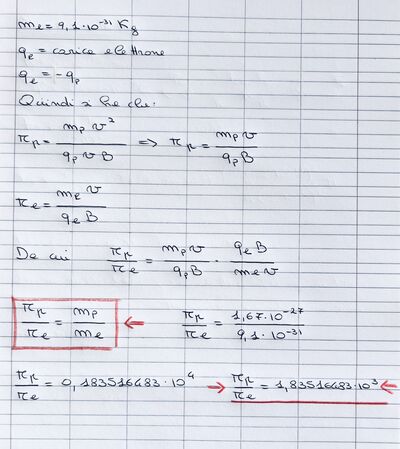 me = 9,1·10⁻³¹ Kg
qe = carica elettrone
qe = -qp
Quindi si ha che:
rp = mp v² / qp v B => rp = mp v / qp B
re = me v / qe B
Da cui rp / re = mp v / qp B · qe B / me v
rp / re = mp / me ← rp / re = 1,67·10⁻²⁷ / 9,1·10⁻³¹
rp / re = 0,183516483·10⁴ → rp / re = 1,83516483·10³ ←